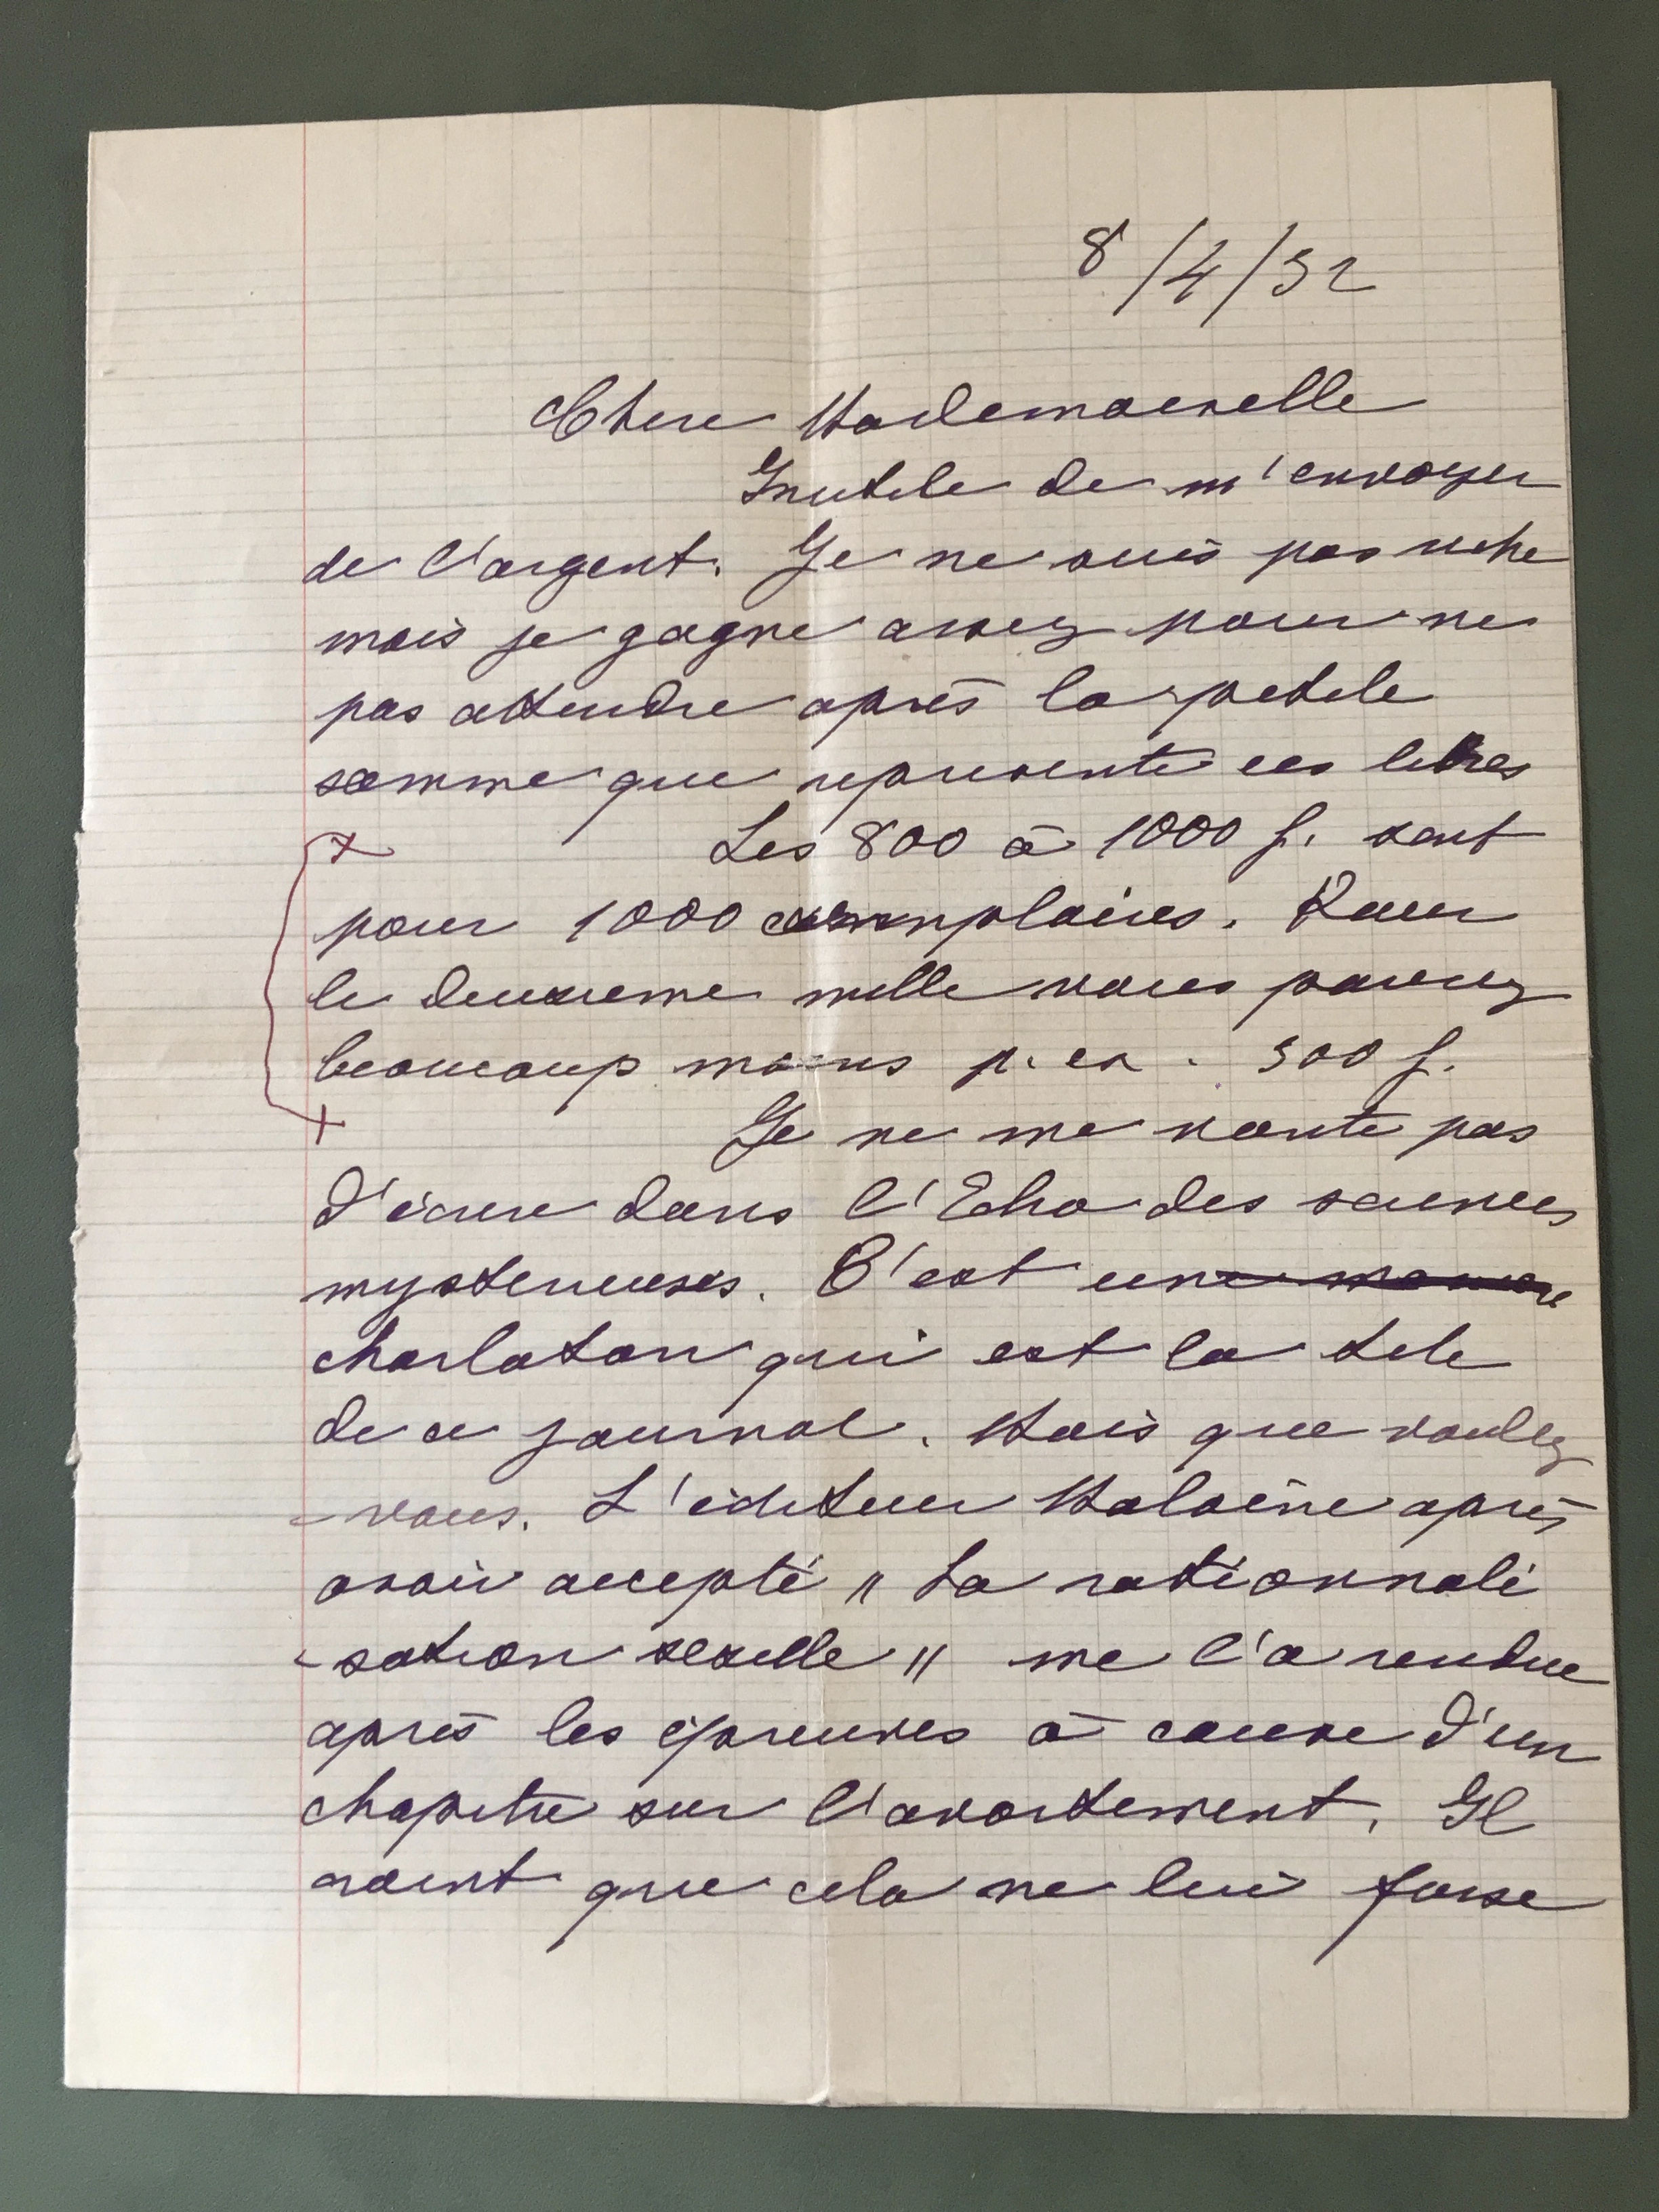 8/4/32
Chere Mademoiselle
Inutile de m'envoyer
de l'argent. Je ne suis pas riche
mais je gagne assez pour ne
pas attendre après la petite
somme que represente ces livres
Les 800 à 1000 f. sont
pour 1000 exemplaires. Pour
le deuxieme mille vous payez
beaucoup moins p. ex. 300 f.
Je ne me vante pas
d'écrire dans l'Echo des sciences
mysterieuses. C'est un
charlatan qui est la tete
de ce journal. Mais que voulez
-vous. L'éditeur Maloine après
avoir accepté " La rationnali
-sation sexuelle " me l'a rendue
après les épreuves à cause d'un
chapitre sur l'avortement. Il
craint que cela ne lui fasse